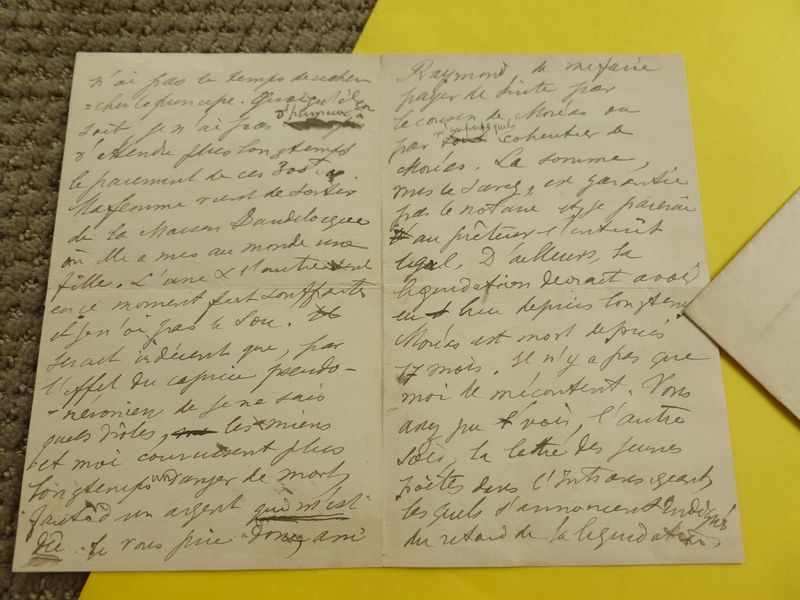 n'ai pas le temps de
cher le principe. Quoiqu'il en
soit, je n'ai pas
d'attendre plus longtemps
le paiement de ces 300 f.
Ma femme vient de sortir
de la Maison Baudelocque
où elle a mis au monde une
fille. L'une & l'autre sont
en ce moment fort souffrantes
et je n'ai pas le sou. Il
serait indécent que, par
l'effet du caprice pseudo-
-néronien de je ne sais
quels drôles, les miens
et moi courussent plus
longtemps un danger de mort,
faute d'un argent qui m'est
dû. Je vous prie donc, ami
Raymond de me faire
payer de suite par
le cousin de Moréas ou
par n'importe quel cohéritier de
Moréas. La somme,
vous le savez, est garantie
par le notaire et je paierai
au prêteur l'intérêt
légal. D'ailleurs, la
liquidation devrait avoir
eu lieu depuis longtemps
Moréas est mort depuis
17 mois. Il n'y a pas que
moi de mécontent. Vous
avez pu voir, l'autre
soir, la lettre des jeunes
poètes dans l'Intransigeant
lesquels s'annoncent indignés
du retard de la liquidation.